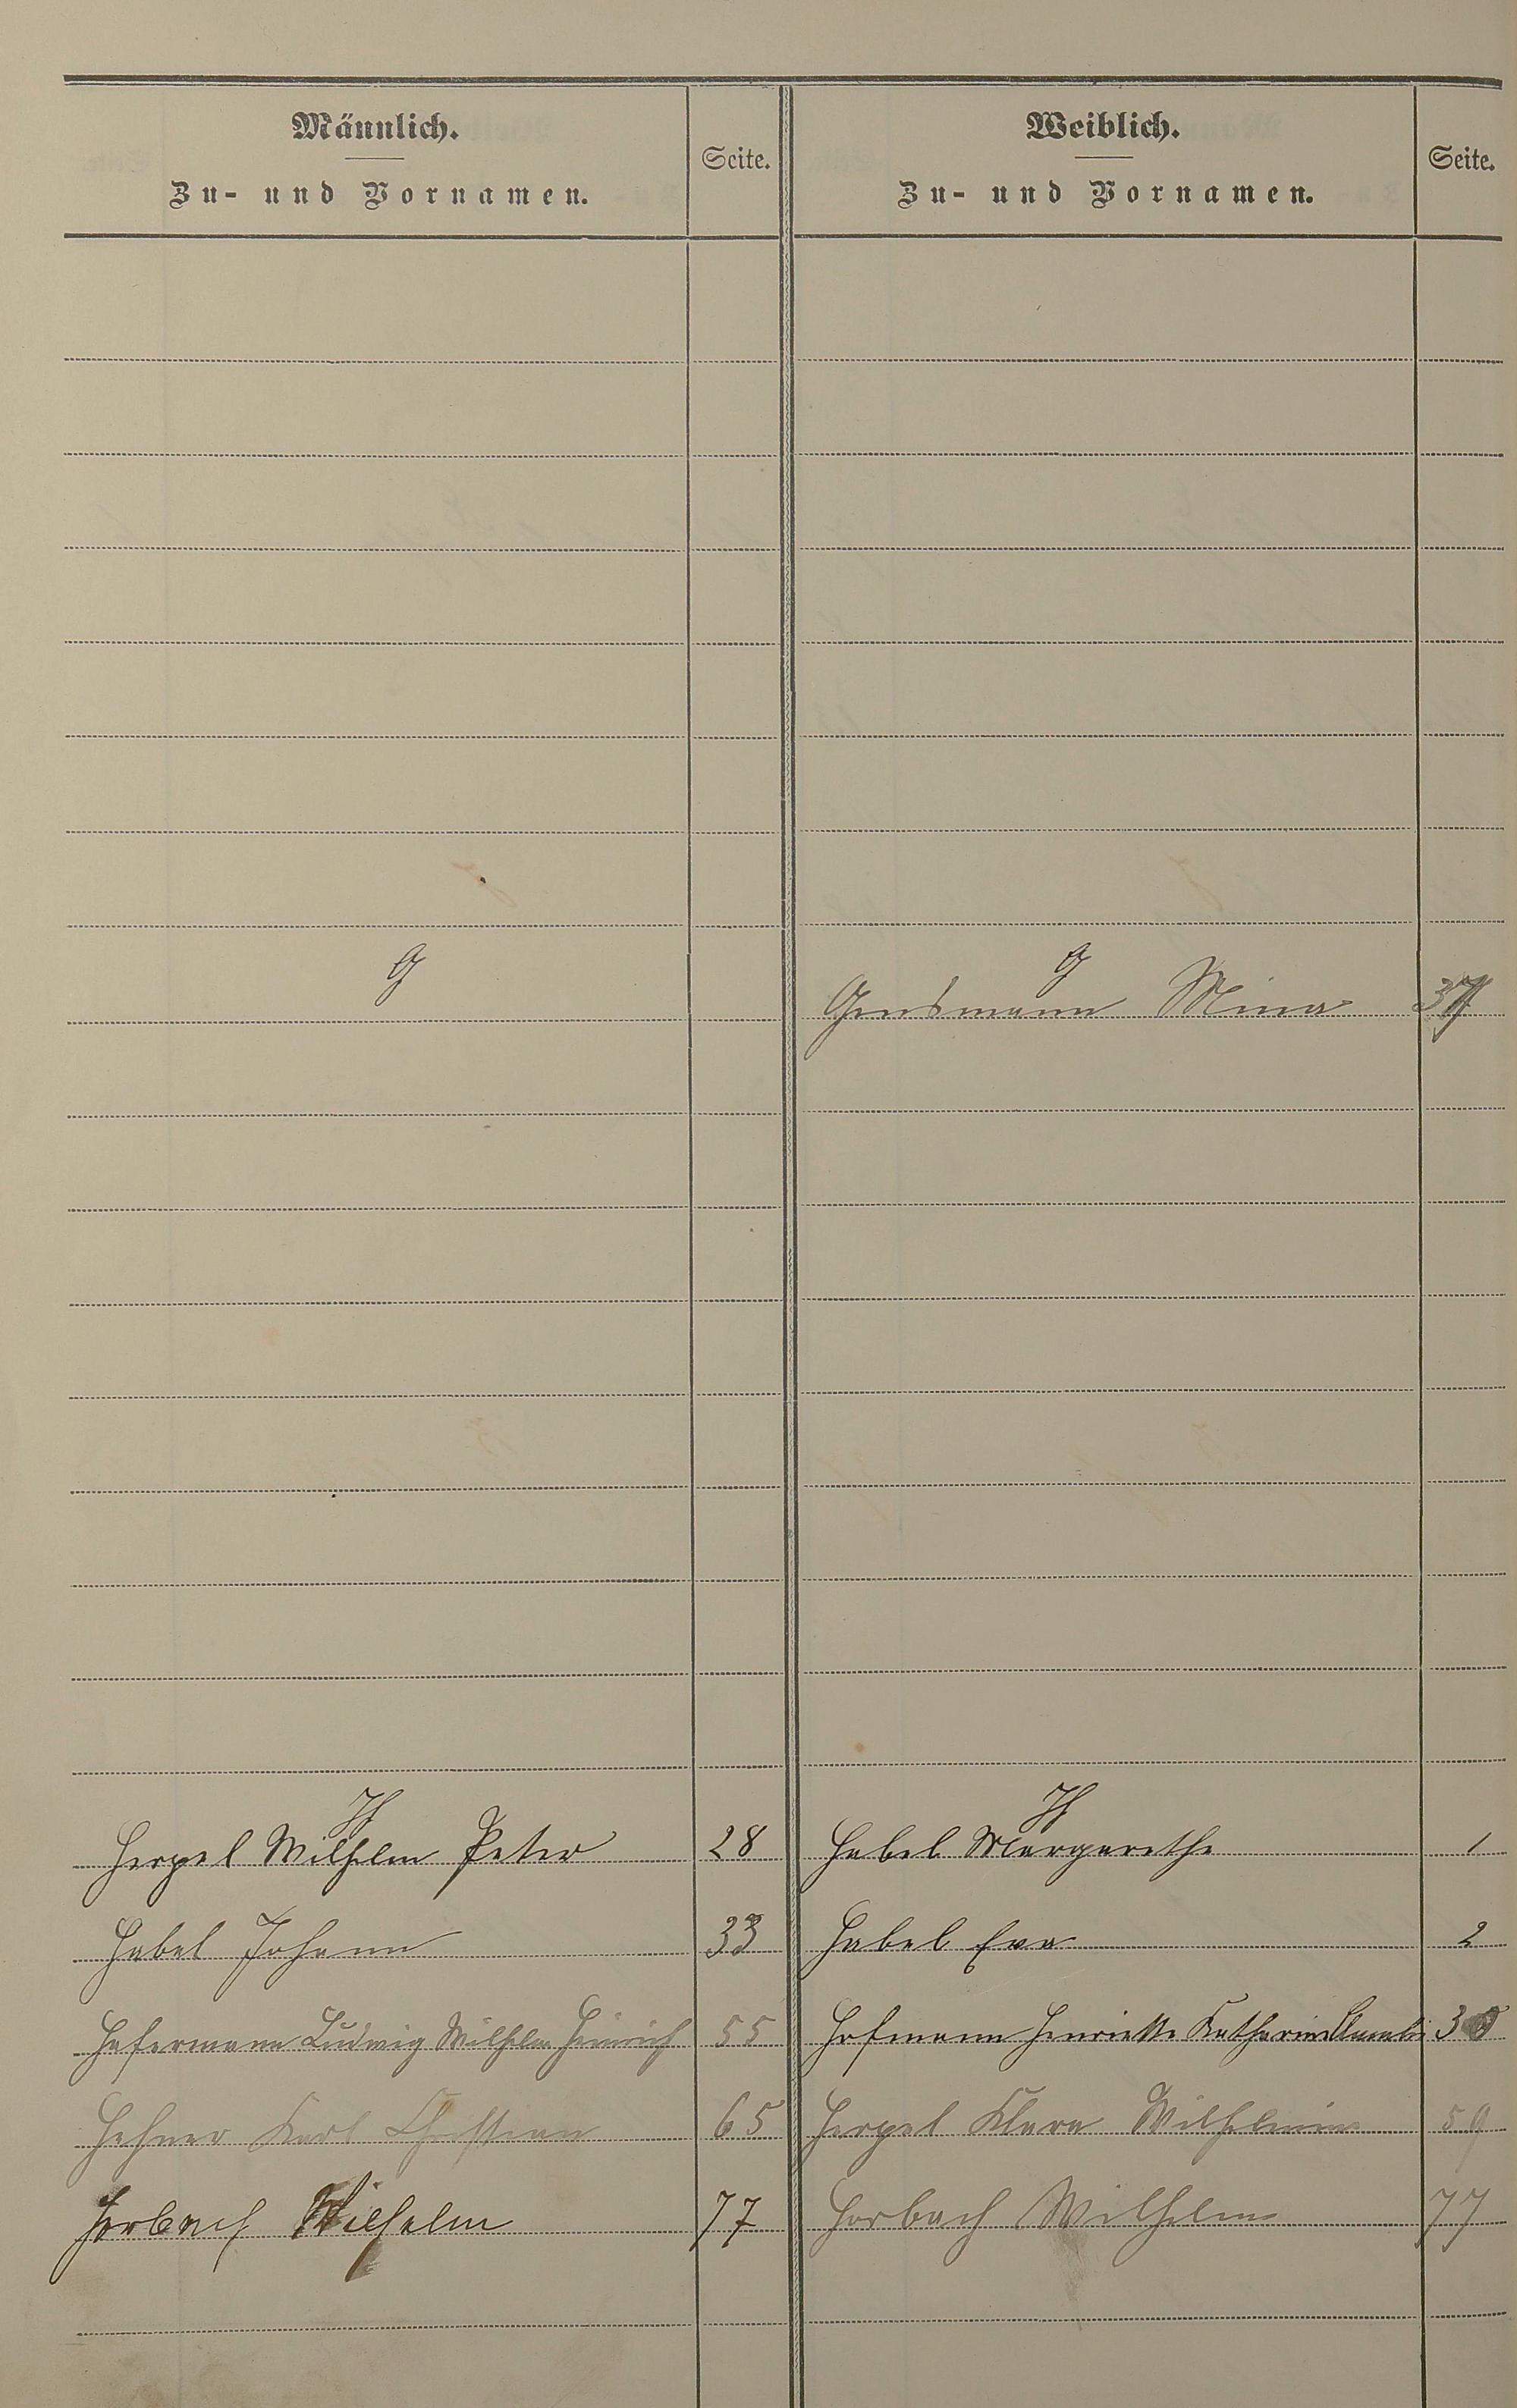 Männlich.
Zu- und Vornamen.
Seite.
Weiblich.
Zu- und Vornamen.
Seite.
G
G
Mina 37
H
H
Herpel Wilhelm Peter 28
Habel Margarethe 1
Habel Johann 33
Habel Eva 2
Hafermann Ludwig Wilhelm Heinrich 55
Hofmann Henriette Katharine Amalie
Hehner Karl Christian 65
Herpel Klara Wilhelmine 59
Horbach Wilhelm 77
Horbach Wilhelm 77